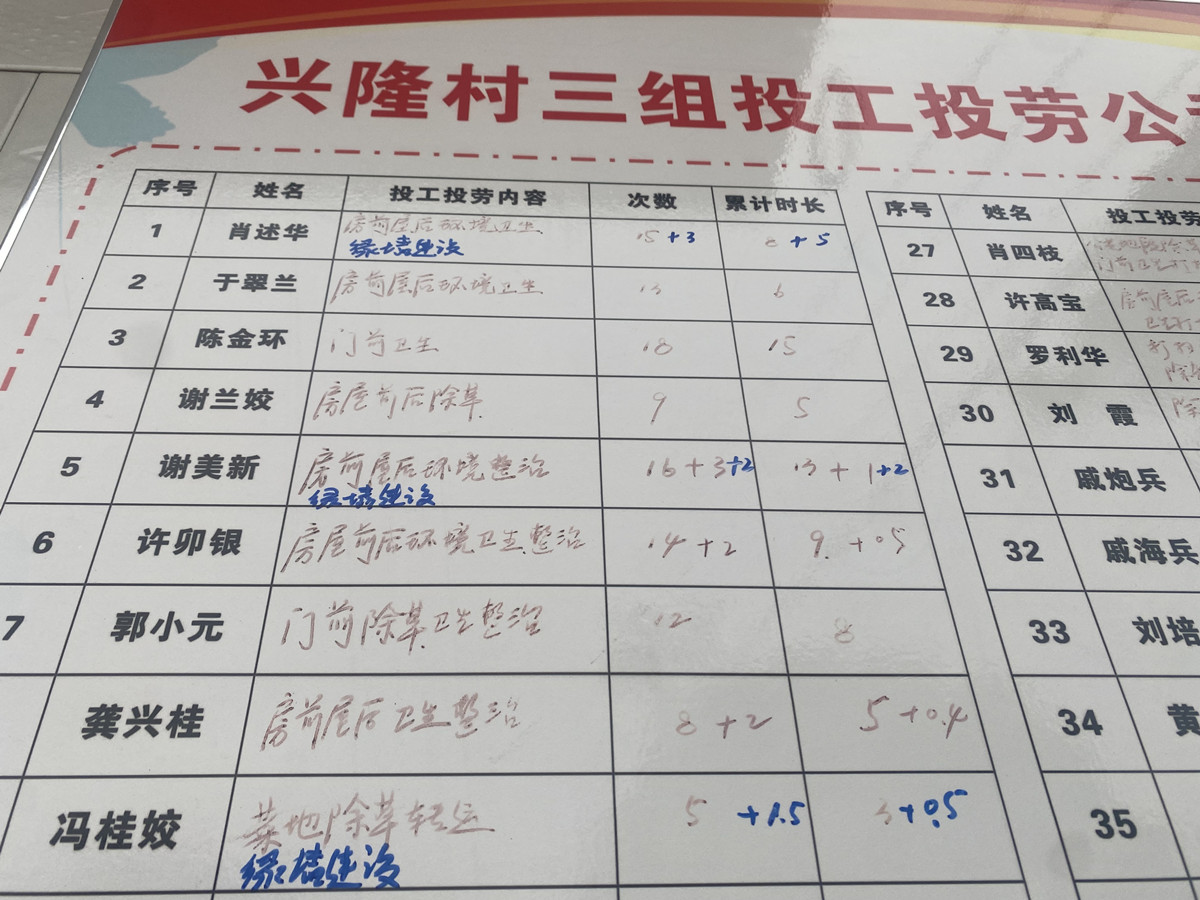 兴隆村三组投工投劳公
序号 姓名 投工投劳内容 次数 累计时长
1 肖述华 房前屋后环境卫生 15 +3 8 +5
绿墙建设
2 于翠兰 房前屋后环境卫生 13 6
3 陈金环 门前卫生 18 15
4 谢兰姣 房屋前后除草 9 5
5 谢美新 房前屋后环境整治 16 +3+2 13 +1+2
绿墙建设
6 许卯银 房屋前后环境卫生整治 14 +2 9 +0.5
7 郭小元 门前除草卫生整治 12 8
龚兴桂 房前屋后卫生整治 8 +2 5 +0.4
冯桂姣 菜地除草转运 5 +1.5 3 +0.5
绿墙建设
序号 姓名 投工投劳
27 肖四枝
门前卫生打
28 许高宝 房前屋后
卫生打
29 罗利华
30 刘 霞 除
31 戚炮兵
32 戚海兵
33 刘培
34 黄
35